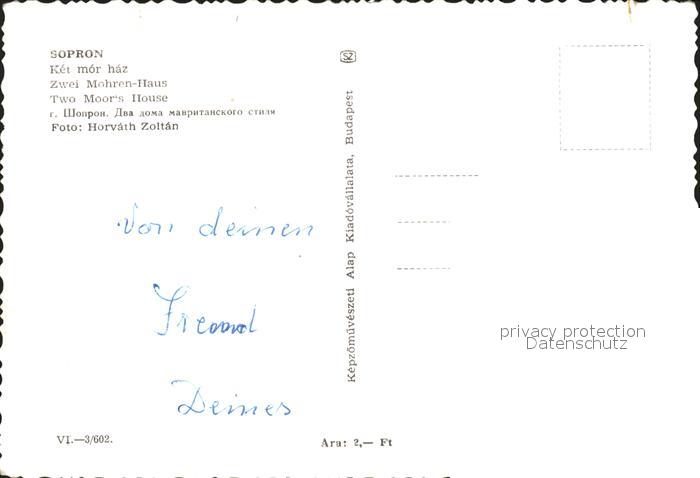 SOPRON
Két mór ház
Zwei Mohren-Haus
Two Moor's House
г. Шопрон. Два дома мавританского стиля
Foto: Horváth Zoltán
SZ
Képzőművészeti Alap Kiadóvállalata, Budapest
Von deinen
Freund
Deines
privacy protection
Datenschutz
VI.—3/602.
Ára: 2,— Ft